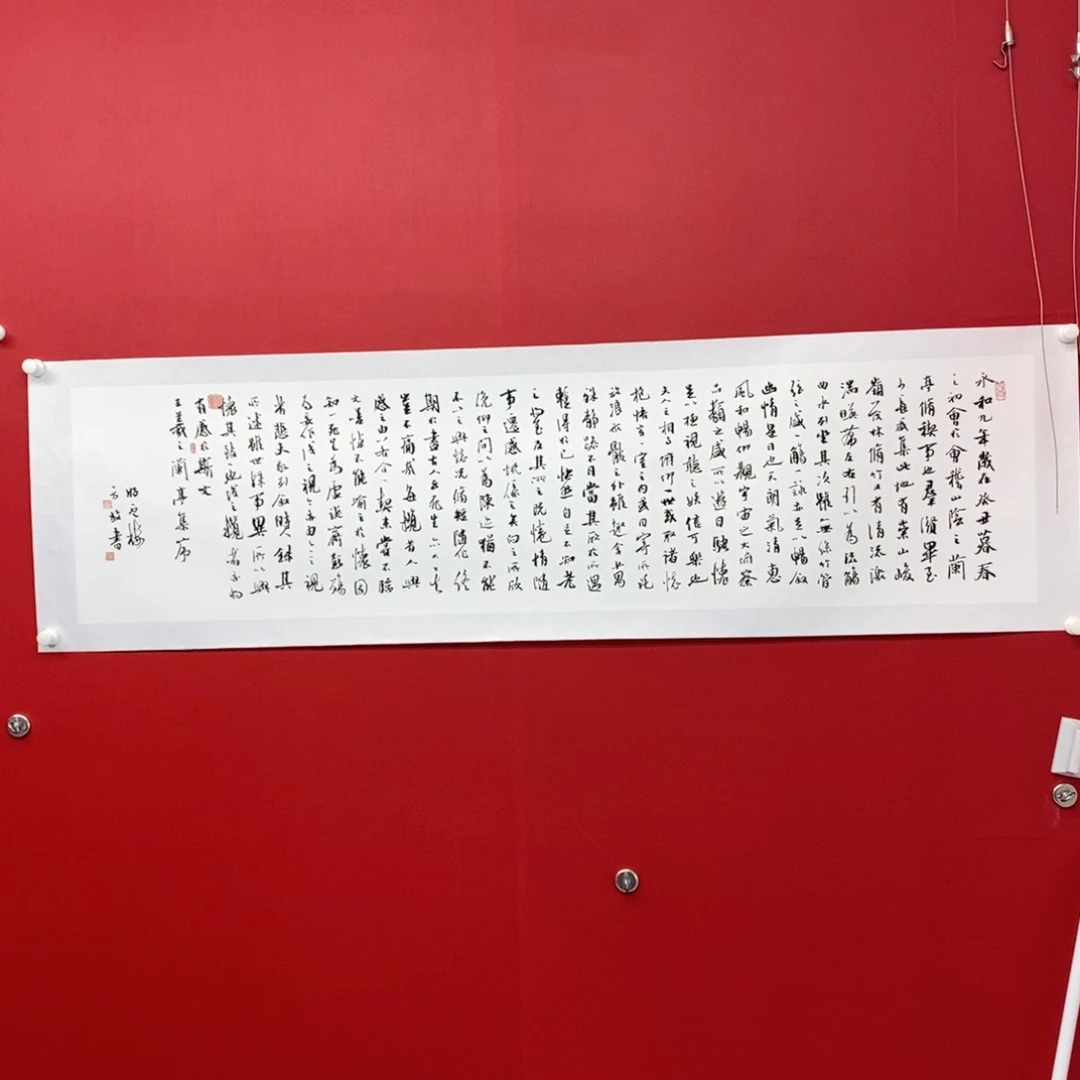 永和九年歲在癸丑暮春
之初會於會稽山陰之蘭
亭脩禊事也羣賢畢至
少長咸集此地有崇山峻
嶺茂林脩竹又有清流激
湍暎帶左右引以為流觴
曲水列坐其次雖無絲竹管
弦之盛一觴一詠亦足以暢叙
幽情是日也天朗氣清惠
風和暢仰觀宇宙之大俯察
品類之盛所以遊目騁懷
足以極視聽之娛信可樂也
夫人之相與俯仰一世或取諸懷
抱悟言一室之內或因寄所託
放浪形骸之外雖趣舍萬
殊靜躁不同當其欣於所遇
暫得於己快然自足不知老
之將至及其所之既惓情隨
事遷感慨係之矣向之所欣
俛仰之間以為陳迹猶不能
不以之興懷況脩短隨化終
期於盡古人云死生亦大矣
豈不痛哉每攬昔人興
感之由若合一契未嘗不臨
文嗟悼不能喻之於懷固
知一死生為虛誕齊彭殤
為妄作後之視今亦由今之視
昔悲夫故列叙時人錄其
所述雖世殊事異所以興
懷其致一也後之攬者亦將
有感於斯文
王羲之蘭亭集序
書